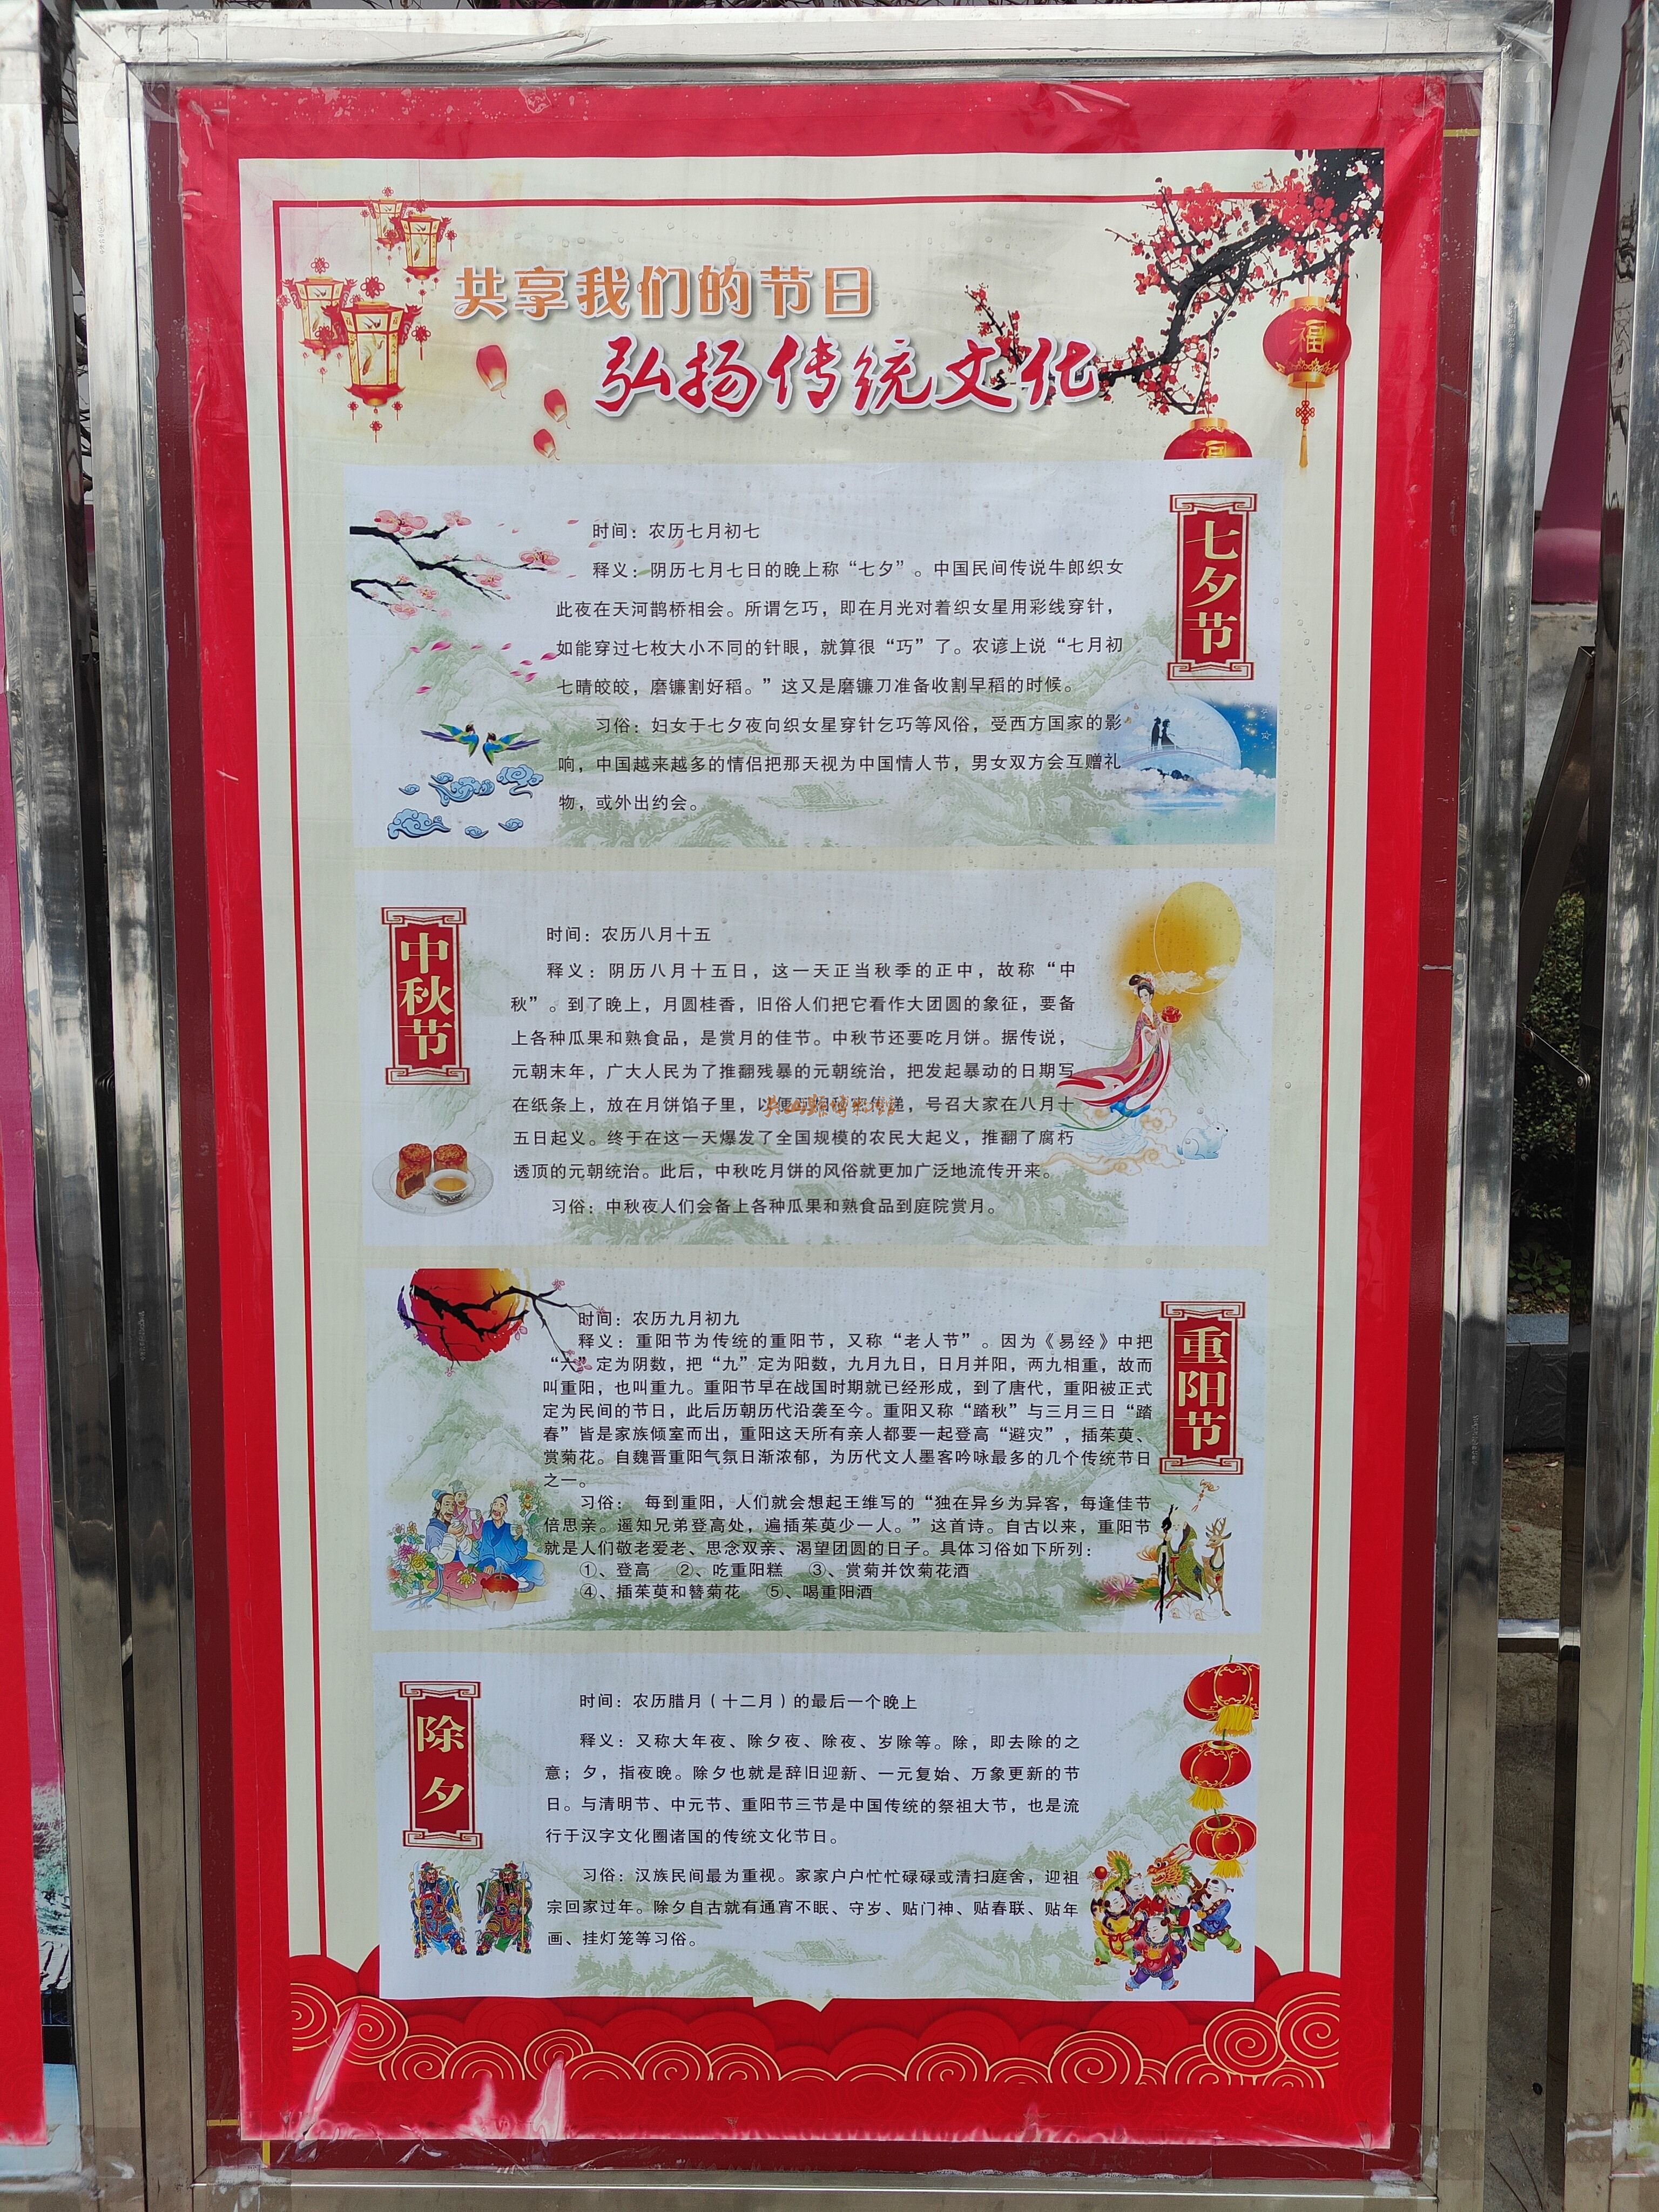 共享我们的节日
弘扬传统文化
福
福
七夕节
时间：农历七月初七
释义：阴历七月七日的晚上称“七夕”。中国民间传说牛郎织女
此夜在天河鹊桥相会。所谓乞巧，即在月光对着织女星用彩线穿针，
如能穿过七枚大小不同的针眼，就算很“巧”了。农谚上说“七月初
七晴皎皎，磨镰割好稻。”这又是磨镰刀准备收割早稻的时候。
习俗：妇女于七夕夜向织女星穿针乞巧等风俗，受西方国家的影
响，中国越来越多的情侣把那天视为中国情人节，男女双方会互赠礼
物，或外出约会。
中秋节
时间：农历八月十五
释义：阴历八月十五日，这一天正当秋季的正中，故称“中
秋”。到了晚上，月圆桂香，旧俗人们把它看作大团圆的象征，要备
上各种瓜果和熟食品，是赏月的佳节。中秋节还要吃月饼。据传说，
元朝末年，广大人民为了推翻残暴的元朝统治，把发起暴动的日期写
在纸条上，放在月饼馅子里，以便 传递，号召大家在八月十
五日起义。终于在这一天爆发了全国规模的农民大起义，推翻了腐朽
透顶的元朝统治。此后，中秋吃月饼的风俗就更加广泛地流传开来。
习俗：中秋夜人们会备上各种瓜果和熟食品到庭院赏月。
重阳节
时间：农历九月初九
释义：重阳节为传统的重阳节，又称“老人节”。因为《易经》中把
“六”定为阴数，把“九”定为阳数，九月九日，日月并阳，两九相重，故而
叫重阳，也叫重九。重阳节早在战国时期就已经形成，到了唐代，重阳被正式
定为民间的节日，此后历朝历代沿袭至今。重阳又称“踏秋”与三月三日“踏
春”皆是家族倾室而出，重阳这天所有亲人都要一起登高“避灾”，插茱萸、
赏菊花。自魏晋重阳气氛日渐浓郁，为历代文人墨客吟咏最多的几个传统节日
之一。
习俗： 每到重阳，人们就会想起王维写的“独在异乡为异客，每逢佳节
倍思亲。遥知兄弟登高处，遍插茱萸少一人。”这首诗。自古以来，重阳节
就是人们敬老爱老、思念双亲、渴望团圆的日子。具体习俗如下所列：
①、登高 ②、吃重阳糕 ③、赏菊并饮菊花酒
④、插茱萸和簪菊花 ⑤、喝重阳酒
除夕
时间：农历腊月（十二月）的最后一个晚上
释义：又称大年夜、除夕夜、除夜、岁除等。除，即去除的之
意；夕，指夜晚。除夕也就是辞旧迎新、一元复始、万象更新的节
日。与清明节、中元节、重阳节三节是中国传统的祭祖大节，也是流
行于汉字文化圈诸国的传统文化节日。
习俗：汉族民间最为重视。家家户户忙忙碌碌或清扫庭舍，迎祖
宗回家过年。除夕自古就有通宵不眠、守岁、贴门神、贴春联、贴年
画、挂灯笼等习俗。